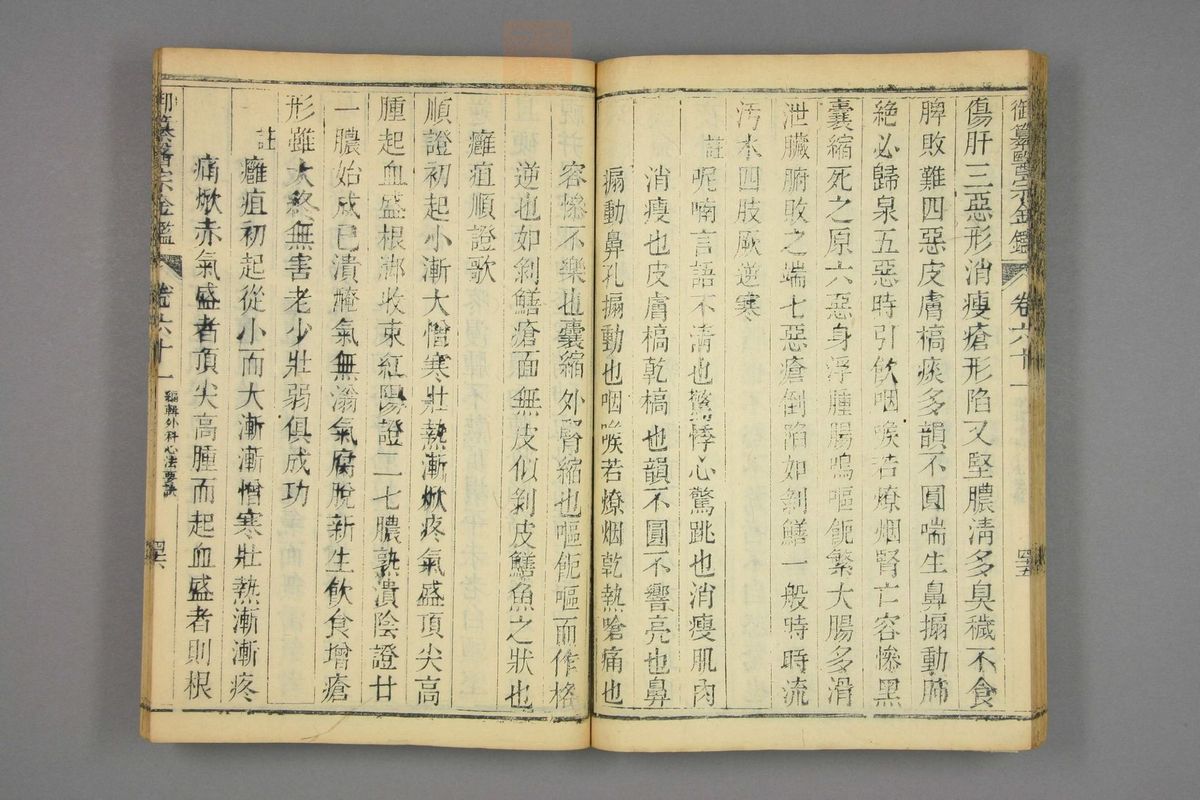 御纂醫宗金鑑 卷六十一 四五
傷肝三惡形消瘦瘡形陷又堅膿清多臭穢不食
脾敗難四惡皮膚槁痰多韻不圓喘生鼻搧動肺
絶必歸泉五惡時引飲咽喉若燎烟腎亡容慘黑
囊縮死之原六惡身浮腫腸鳴嘔呃繁大腸多滑
泄臟腑敗之端七惡瘡倒陷如剝鱔一般時時流
汚水四肢厥逆寒
註呢喃言語不清也驚悸心驚跳也消瘦肌肉
消瘦也皮膚槁乾槁也韻不圓不響亮也鼻
搧動鼻孔搧動也咽喉若燎烟乾熱嗆痛也
容慘不樂也囊縮外腎縮也嘔呃嘔而作格
逆也如剝鱔瘡面無皮似剝皮鱔魚之狀也
癰疽順證歌
順證初起小漸大憎寒壯熱漸焮疼氣盛頂尖高
腫起血盛根脚收束紅陽證二七膿熟潰陰證廿
一膿始成已潰醃氣無滃氣腐脫新生飲食增瘡
形雖大終無害老少壯弱俱成功
註癰疽初起從小而大漸漸憎寒壯熱漸漸疼
痛焮赤氣盛者頂尖高腫而起血盛者則根
御纂醫宗金鑑 卷六十一 編輯外科心法要訣 四六